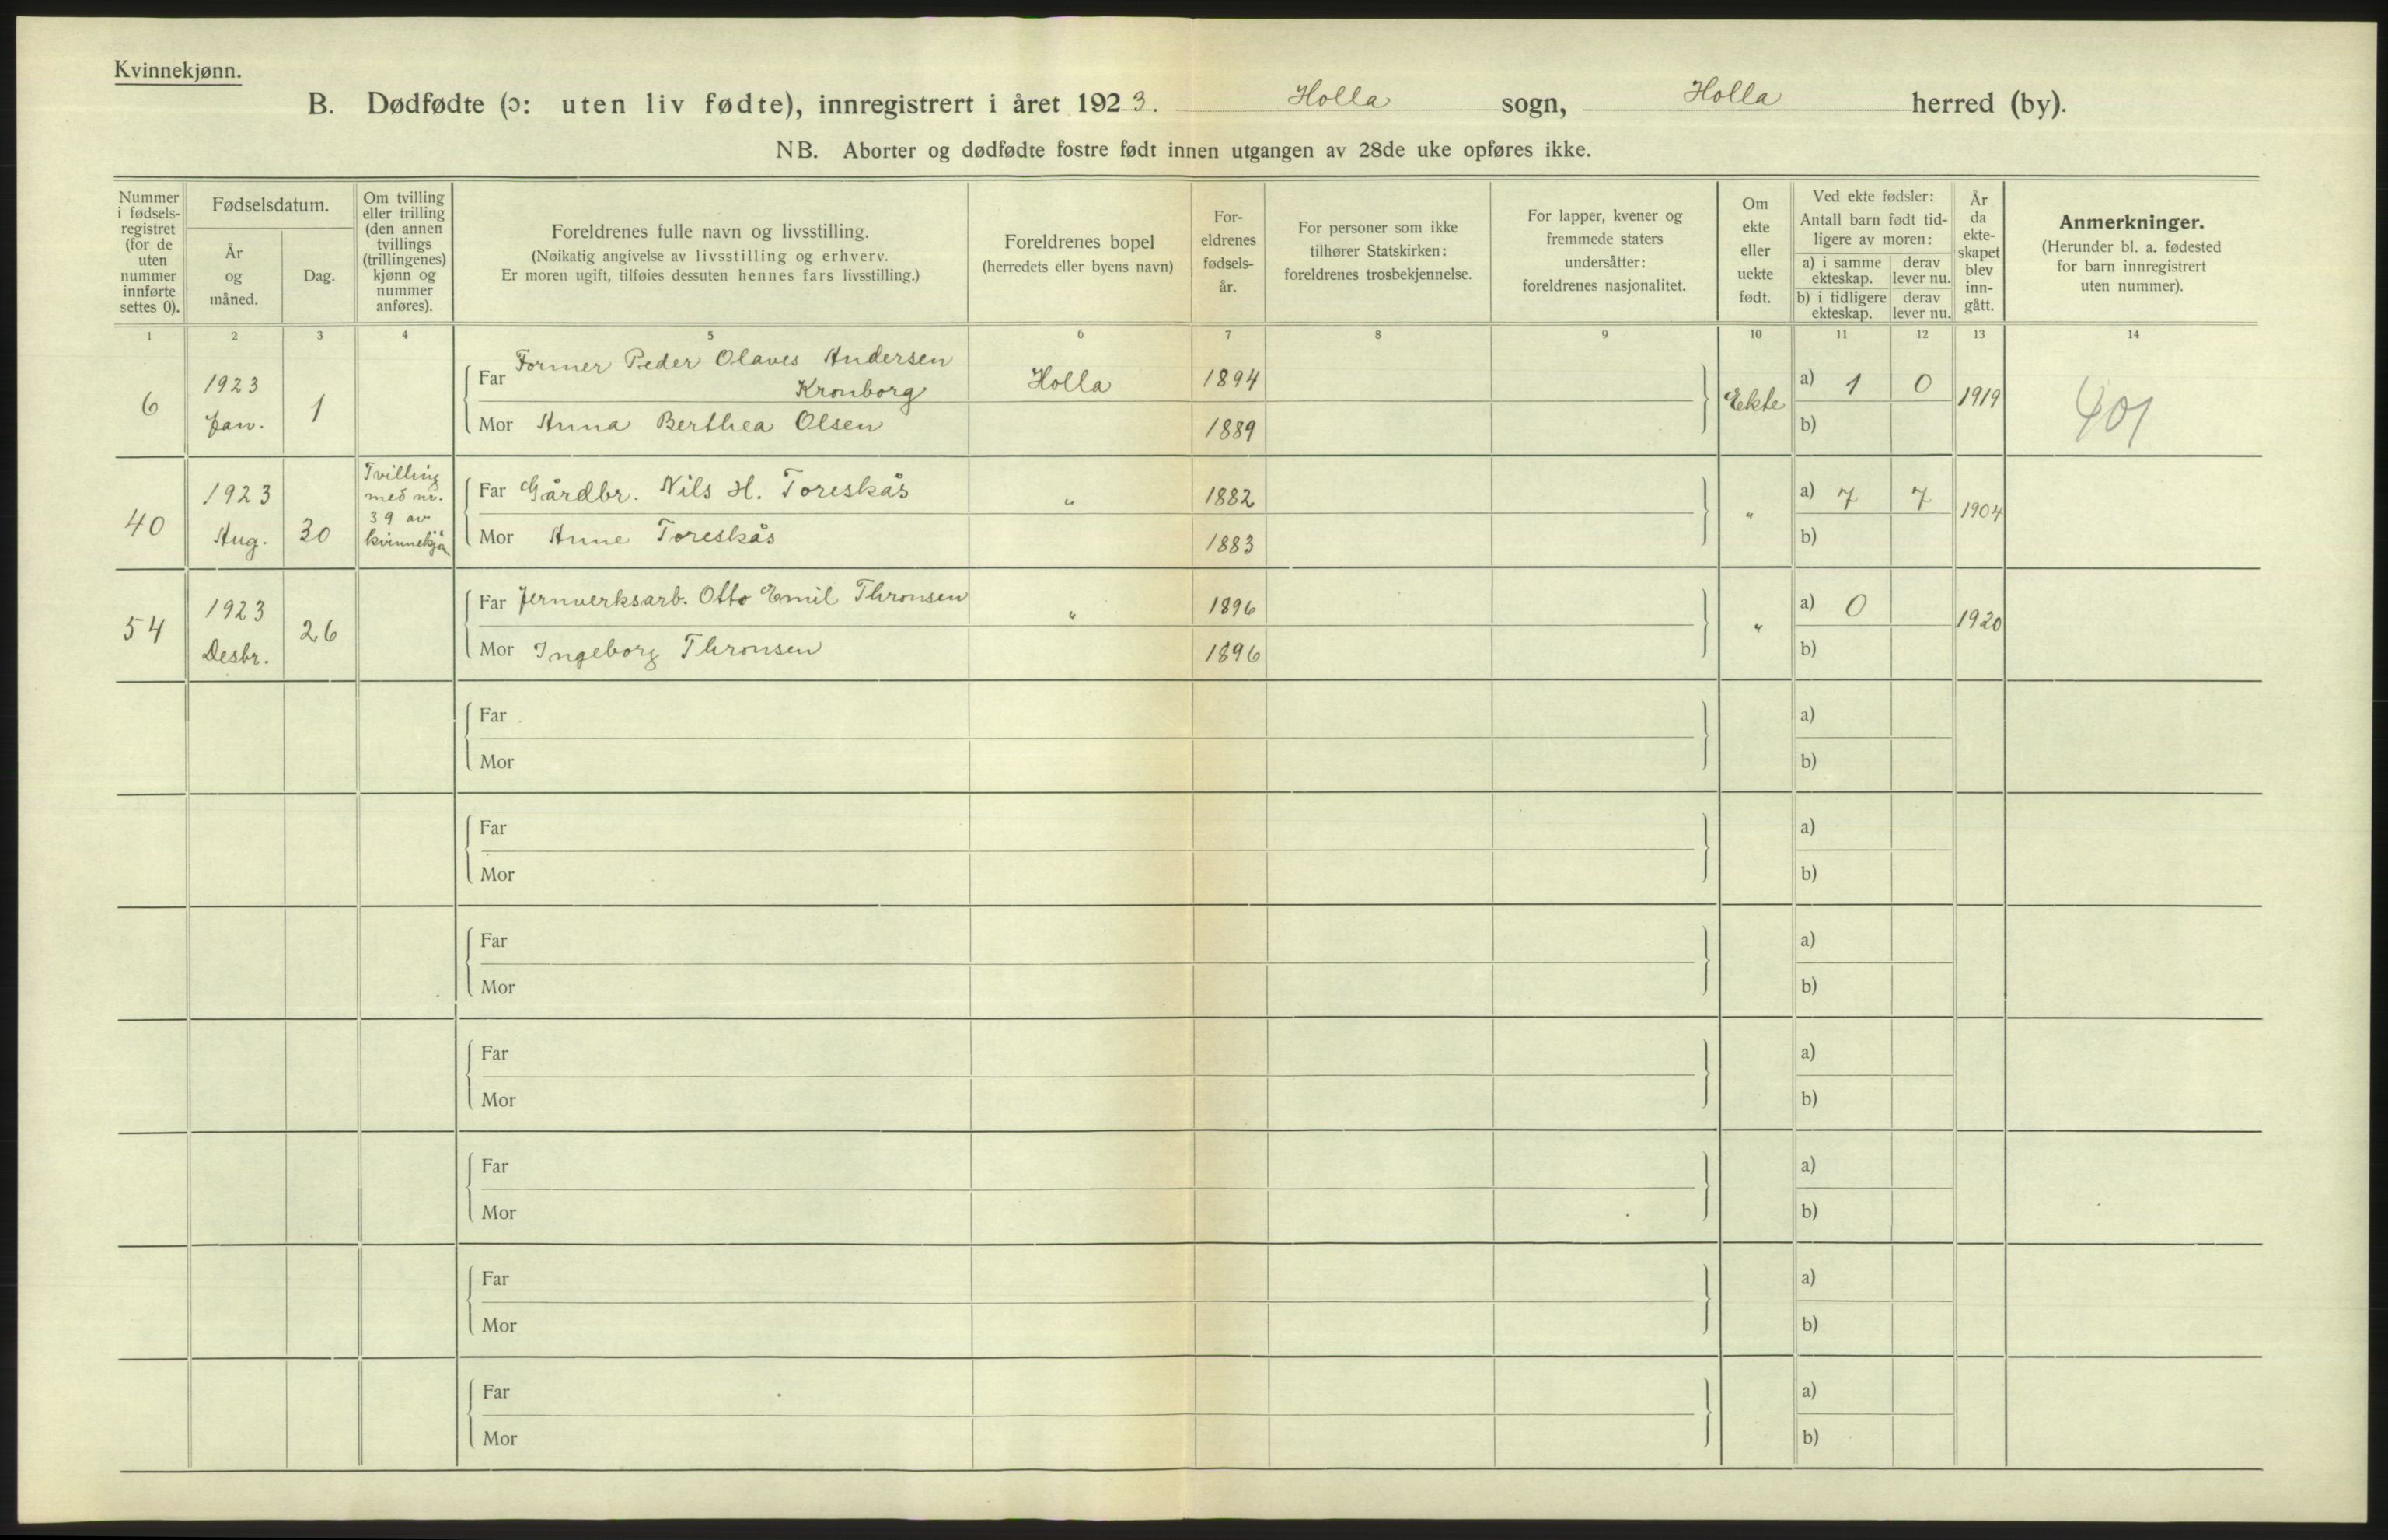 Kvinnekjønn.
B. Dødfødte (ɔ: uten liv fødte), innregistrert i året 1923. Holla sogn, Holla herred (by).
NB. Aborter og dødfødte fostre født innen utgangen av 28de uke opføres ikke.
Nummer
i fødsels-
registret
(for de
uten
nummer
innførte
settes 0).
Fødselsdatum.
År
og
måned.
Dag.
Om tvilling
eller trilling
(den annen
tvillings
(trillingenes)
kjønn og
nummer
anføres).
Foreldrenes fulle navn og livsstilling.
(Nøikatig angivelse av livsstilling og erhverv.
Er moren ugift, tilføies dessuten hennes fars livsstilling.)
Foreldrenes bopel
(herredets eller byens navn)
For-
eldrenes
fødsels-
år.
For personer som ikke
tilhører Statskirken:
foreldrenes trosbekjennelse.
For lapper, kvener og
fremmede staters
undersåtter:
foreldrenes nasjonalitet.
Om
ekte
eller
uekte
født.
Ved ekte fødsler:
Antall barn født tid-
ligere av moren:
a) i samme
ekteskap.
derav
lever nu.
b) i tidligere
ekteskap.
derav
lever nu.
År
da
ekte-
skapet
blev
inn-
gått.
Anmerkninger.
(Herunder bl. a. fødested
for barn innregistrert
uten nummer).
1 2 3 4 5 6 7 8 9 10 11 12 13 14
6
1923
Jan.
1
Far Former Peder Olaves Andersen
Kronborg
Mor Anna Berthea Olsen
Holla
1894
1889
Ekte
a) 1 0
b)
1919
401
40
1923
Aug.
30
Tvilling
med nr.
39 av
kvinnekjø
Far Gårdbr. Nils H. Toreskås
Mor Anne Toreskås
"
1882
1883
"
a) 7 7
b)
1904
54
1923
Desbr.
26
Far Jernverksarb. Otto Emil Thronsen
Mor Ingeborg Thronsen
"
1896
1896
"
a) 0
b)
1920
Far a)
Mor b)
Far a)
Mor b)
Far a)
Mor b)
Far a)
Mor b)
Far a)
Mor b)
Far a)
Mor b)
Far a)
Mor b)